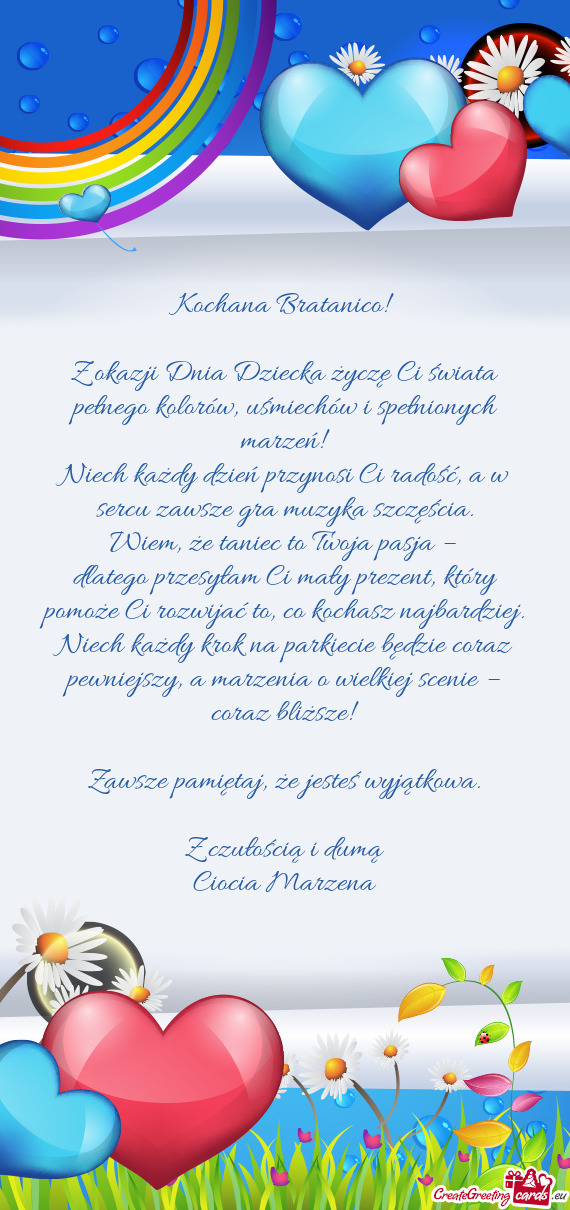 Kochana Bratanico!
Z okazji Dnia Dziecka życzę Ci świata
pełnego kolorów, uśmiechów i spełnionych
marzeń!
Niech każdy dzień przynosi Ci radość, a w
sercu zawsze gra muzyka szczęścia.
Wiem, że taniec to Twoja pasja –
dlatego przesyłam Ci mały prezent, który
pomoże Ci rozwijać to, co kochasz najbardziej.
Niech każdy krok na parkiecie będzie coraz
pewniejszy, a marzenia o wielkiej scenie –
coraz bliższe!
Zawsze pamiętaj, że jesteś wyjątkowa.
Z czułością i dumą
Ciocia Marzena
CreateGreetingcards.eu